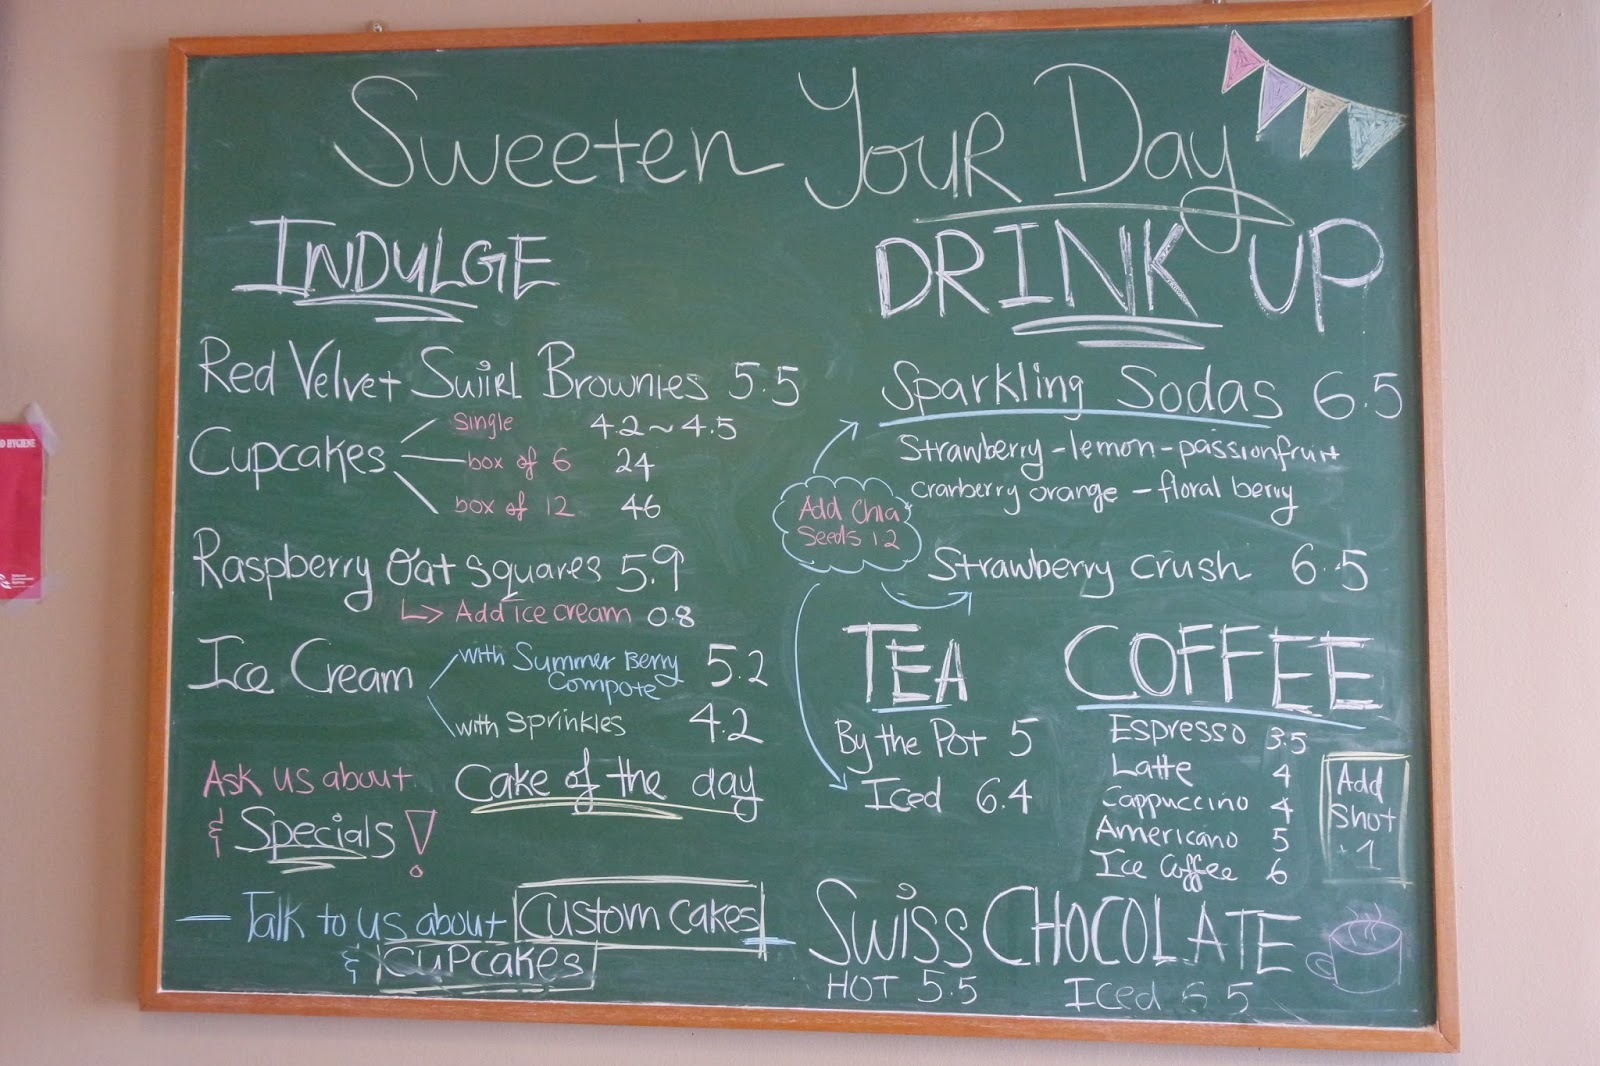 Sweeten Your Day
INDULGE
Red Velvet Swirl Brownies 5.5
Cupcakes
single 4.2~4.5
box of 6 24
box of 12 46
Raspberry Oat squares 5.9
Add ice cream 0.8
Ice Cream
with Summer Berry Compote 5.2
with sprinkles 4.2
Ask us about
Cake of the day
& Specials!
Talk to us about Custom cakes
& Cupcakes
DRINK UP
Sparkling Sodas 6.5
Strawberry - lemon - passionfruit
cranberry orange - floral berry
Add Chia
Seeds 1.2
Strawberry crush 6.5
TEA
By the Pot 5
Iced 6.4
COFFEE
Espresso 3.5
Latte 4
Cappuccino 4
Americano 5
Ice Coffee 6
Add
Shot
.1
SWISS CHOCOLATE
HOT 5.5 Iced 6.5
HYGIENE